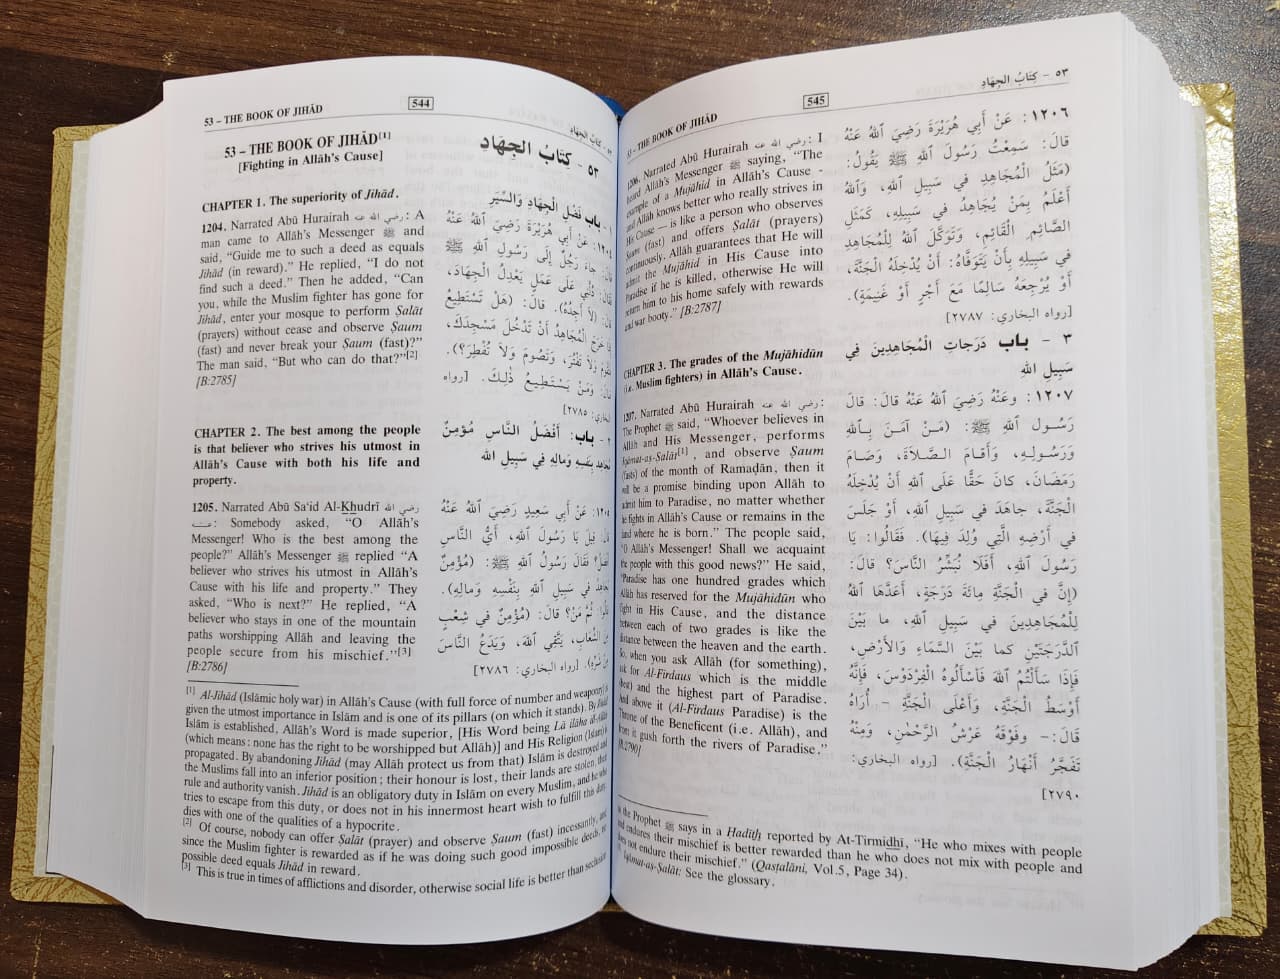 53 – THE BOOK OF JIHĀD
544
٥٣ - كِتَابُ الجِهَادِ
53 – THE BOOK OF JIHĀD[1]
[Fighting in Allāh's Cause]
CHAPTER 1. The superiority of Jihād.
1204. Narrated Abū Hurairah رضي الله عنه: A
man came to Allāh's Messenger ﷺ and
said, "Guide me to such a deed as equals
Jihād (in reward)." He replied, "I do not
find such a deed." Then he added, "Can
you, while the Muslim fighter has gone for
Jihād, enter your mosque to perform Ṣalāt
(prayers) without cease and observe Ṣaum
(fast) and never break your Ṣaum (fast)?"
The man said, "But who can do that?"[2]
[B:2785]
CHAPTER 2. The best among the people
is that believer who strives his utmost in
Allāh's Cause with both his life and
property.
1205. Narrated Abū Sa'id Al-Khudrī رضي الله
عنه: Somebody asked, "O Allāh's
Messenger! Who is the best among the
people?" Allāh's Messenger ﷺ replied "A
believer who strives his utmost in Allāh's
Cause with his life and property." They
asked, "Who is next?" He replied, "A
believer who stays in one of the mountain
paths worshipping Allāh and leaving the
people secure from his mischief."[3]
[B:2786]
٥٣ - كِتَابُ الجِهَادِ
١ - باب فَضْلِ الْجِهَادِ وَالسِّيَرِ
١٢٠٤: عَنْ أَبِي هُرَيْرَةَ رَضِيَ اللهُ عَنْهُ
قَالَ: جَاءَ رَجُلٌ إِلَى رَسُولِ اللهِ ﷺ
فَقَالَ: دُلَّنِي عَلَى عَمَلٍ يَعْدِلُ الْجِهَادَ،
قَالَ: (لاَ أَجِدُهُ). قَالَ: (هَلْ تَسْتَطِيعُ
إِذَا خَرَجَ الْمُجَاهِدُ أَنْ تَدْخُلَ مَسْجِدَكَ،
فَتَقُومَ وَلاَ تَفْتُرَ، وَتَصُومَ وَلاَ تُفْطِرَ؟).
قَالَ: وَمَنْ يَسْتَطِيعُ ذٰلِكَ. [رواه
البخاري: ٢٧٨٥]
٢ - باب: أَفْضَلُ النَّاسِ مُؤْمِنٌ
مُجَاهِدٌ بِنَفْسِهِ وَمَالِهِ فِي سَبِيلِ الله
١٢٠٥: عَنْ أَبِي سَعِيدٍ رَضِيَ اللهُ عَنْهُ
قَالَ: قِيلَ يَا رَسُولَ اللهِ، أَيُّ النَّاسِ
أَفْضَلُ؟ فَقَالَ رَسُولُ اللهِ ﷺ: (مُؤْمِنٌ
يُجَاهِدُ فِي سَبِيلِ اللهِ بِنَفْسِهِ وَمَالِهِ).
قَالُوا: ثُمَّ مَنْ؟ قَالَ: (مُؤْمِنٌ فِي شِعْبٍ
مِنَ الشِّعَابِ، يَتَّقِي اللهَ، وَيَدَعُ النَّاسَ
مِنْ شَرِّهِ). [رواه البخاري: ٢٧٨٦]
[1] Al-Jihād (Islāmic holy war) in Allāh's Cause (with full force of number and weaponry) is
given the utmost importance in Islām and is one of its pillars (on which it stands). By Jihād
Islām is established, Allāh's Word is made superior, [His Word being Lā ilāha ill-Allāh
(which means: none has the right to be worshipped but Allāh)] and His Religion (Islām) is
propagated. By abandoning Jihād (may Allāh protect us from that) Islām is destroyed and
the Muslims fall into an inferior position; their honour is lost, their lands are stolen, their
rule and authority vanish. Jihād is an obligatory duty in Islām on every Muslim, and he who
tries to escape from this duty, or does not in his innermost heart wish to fulfill this duty,
dies with one of the qualities of a hypocrite.
[2] Of course, nobody can offer Ṣalāt (prayer) and observe Ṣaum (fast) incessantly, and
since the Muslim fighter is rewarded as if he was doing such good impossible deeds, no
possible deed equals Jihād in reward.
[3] This is true in times of afflictions and disorder, otherwise social life is better than seclusion
53 – THE BOOK OF JIHĀD
545
٥٣ - كِتَابُ الجِهَادِ
1206. Narrated Abū Hurairah رضي الله عنه: I
heard Allāh's Messenger ﷺ saying, "The
example of a Mujāhid in Allāh's Cause -
and Allāh knows better who really strives in
His Cause — is like a person who observes
Ṣaum (fast) and offers Ṣalāt (prayers)
continuously. Allāh guarantees that He will
admit the Mujāhid in His Cause into
Paradise if he is killed, otherwise He will
return him to his home safely with rewards
and war booty." [B:2787]
CHAPTER 3. The grades of the Mujāhidūn
(i.e. Muslim fighters) in Allāh's Cause.
1207. Narrated Abū Hurairah رضي الله عنه:
The Prophet ﷺ said, "Whoever believes in
Allāh and His Messenger, performs
Iqāmat-as-Ṣalāt[1], and observe Ṣaum
(fasts) of the month of Ramaḍān, then it
will be a promise binding upon Allāh to
admit him to Paradise, no matter whether
he fights in Allāh's Cause or remains in the
land where he is born." The people said,
"O Allāh's Messenger! Shall we acquaint
the people with this good news?" He said,
"Paradise has one hundred grades which
Allāh has reserved for the Mujāhidūn who
fight in His Cause, and the distance
between each of two grades is like the
distance between the heaven and the earth.
So, when you ask Allāh (for something),
ask for Al-Firdaus which is the middle
(best) and the highest part of Paradise.
And above it (Al-Firdaus Paradise) is the
Throne of the Beneficent (i.e. Allāh), and
from it gush forth the rivers of Paradise."
[B:2790]
١٢٠٦: عَنْ أَبِي هُرَيْرَةَ رَضِيَ اللهُ عَنْهُ
قَالَ: سَمِعْتُ رَسُولَ اللهِ ﷺ يَقُولُ:
(مَثَلُ الْمُجَاهِدِ فِي سَبِيلِ اللهِ، وَاللهُ
أَعْلَمُ بِمَنْ يُجَاهِدُ فِي سَبِيلِهِ، كَمَثَلِ
الصَّائِمِ الْقَائِمِ، وَتَوَكَّلَ اللهُ لِلْمُجَاهِدِ
فِي سَبِيلِهِ بِأَنْ يَتَوَفَّاهُ: أَنْ يُدْخِلَهُ الْجَنَّةَ،
أَوْ يُرْجِعَهُ سَالِمًا مَعَ أَجْرٍ أَوْ غَنِيمَةٍ).
[رواه البخاري: ٢٧٨٧]
٣ - باب دَرَجَاتِ الْمُجَاهِدِينَ فِي
سَبِيلِ اللهِ
١٢٠٧: وعَنْهُ رَضِيَ اللهُ عَنْهُ قَالَ: قَالَ
رَسُولُ اللهِ ﷺ: (مَنْ آمَنَ بِاللهِ
وَرَسُولِهِ، وَأَقَامَ الصَّلاَةَ، وَصَامَ
رَمَضَانَ، كانَ حَقًّا عَلَى اللهِ أَنْ يُدْخِلَهُ
الْجَنَّةَ، جَاهَدَ فِي سَبِيلِ اللهِ، أَوْ جَلَسَ
فِي أَرْضِهِ الَّتِي وُلِدَ فِيهَا). فَقَالُوا: يَا
رَسُولَ اللهِ، أَفَلاَ نُبَشِّرُ النَّاسَ؟ قالَ:
(إِنَّ فِي الْجَنَّةِ مِائَةَ دَرَجَةٍ، أَعَدَّهَا اللهُ
لِلْمُجَاهِدِينَ فِي سَبِيلِ اللهِ، ما بَيْنَ
الدَّرَجَتَيْنِ كما بَيْنَ السَّمَاءِ وَالأَرْضِ،
فَإِذَا سَأَلْتُمُ اللهَ فَاسْأَلُوهُ الْفِرْدَوْسَ، فَإِنَّهُ
أَوْسَطُ الْجَنَّةِ، وَأَعْلَى الْجَنَّةِ - أُرَاهُ
قالَ:- وَفَوْقَهُ عَرْشُ الرَّحْمٰنِ، وَمِنْهُ
تَفَجَّرُ أَنْهَارُ الْجَنَّةِ). [رواه البخاري:
٢٧٩٠]
as the Prophet ﷺ says in a Hadīth reported by At-Tirmidhi, "He who mixes with people
and endures their mischief is better rewarded than he who does not mix with people and
does not endure their mischief." (Qasṭalāni, Vol.5, Page 34).
Iqāmat-as-Ṣalāt: See the glossary.